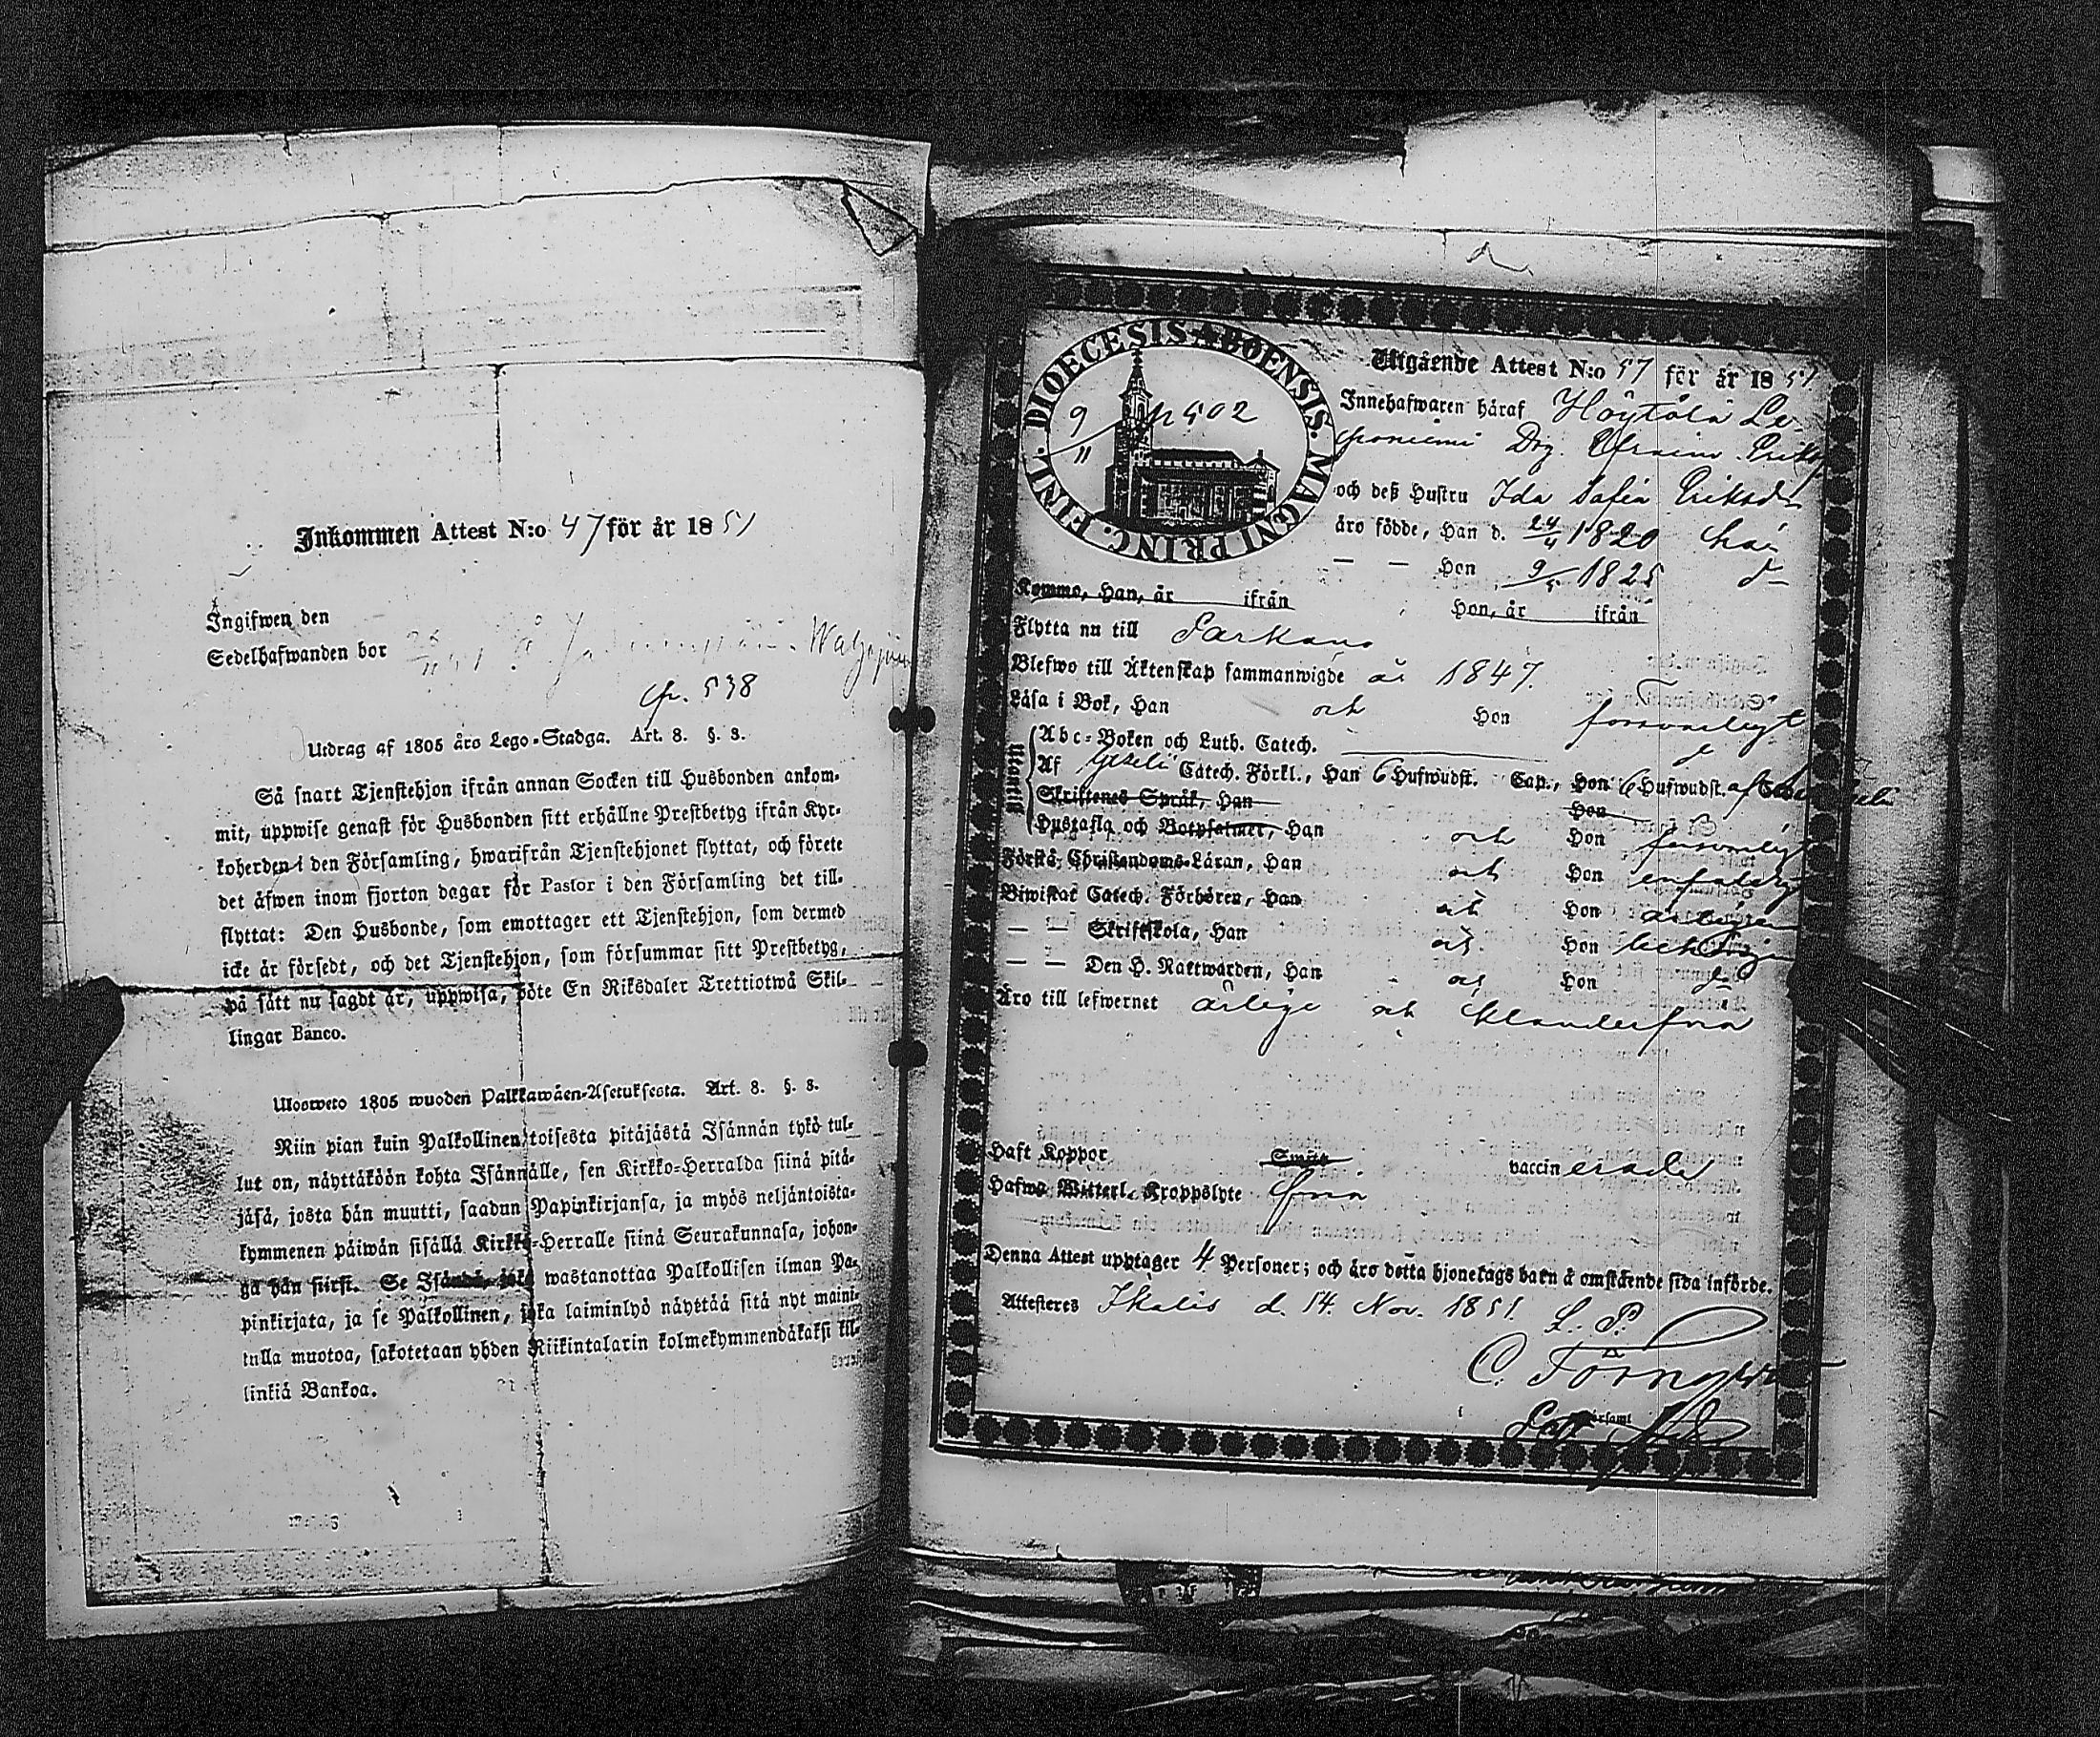 Inkommen Attest N:o 47 för år 1851
Ingifwen den
Sedelhafwanden bor
538
Utdrag af 1805 åro Lego-Stadga. Art. 8. §. 3.
Så snart Tjenstehjon ifrån annan Socken till Husbonden ankom-
mit, uppwise genast för Husbonden sitt erhållne Prestbetyg ifrån Kyr-
koherden i den Församling, hwarifrån Tjenstehjonet flyttat, och förete
det äfwen inom fjorton dagar för Pastor i den Församling det till-
flyttat: Den Husbonde, som emottager ett Tjenstehjon, som dermed
icke är försedt, och det Tjenstehjon, som försummar sitt Prestbetyg,
på sätt nu sagdt är, uppwisa, böte En Riksdaler Trettiotwå Skil-
lingar Banco.
Ulosweto 1805 wuoden Palkkawäen-Asetuksesta. Art. 8. §. 3.
Niin pian kuin Palkollinen toisesta pitäjästä Isännän tykö tul-
lut on, näyttäköön kohta Isännälle, sen Kirkko-Herralda siinä pitä-
jäsä, josta hän muutti, saadun Papinkirjansa, ja myös neljäntoista-
kymmenen päiwän sisällä Kirkko-Herralle siinä Seurakunnasa, johon-
ga hän siirsi. Se Isändä, joka wastanottaa Palkollisen ilman Pa-
pinkirjata, ja se Palkollinen, joka laiminlyö näyttää sitä nyt maini-
tulla muotoa, sakotetaan yhden Riikintalarin kolmekymmendäkaksi kil-
linkiä Bankoa.
FINL. DIOECESIS ABOENSIS. MAGNI PRINC.
9/11 p 502
Utgående Attest N:o 57 för år 1851
Innehafwaren häraf Höytölä Le-
poniemi Drg. Efraim Eriks
och deß Hustru Ida Safia Eriksdr
äro födde, Han d. 24/4 1820 här
— — Hon 9/5 1825 d
Komme, Han, år ifrån Hon, år ifrån
Flytta nu till Parkano
Blefwo till Äktenskap sammanwigde år 1847.
Läsa i Bok, Han och Hon forsvarligt
Utantill
Abc-Boken och Luth. Catech.
Af Gezelii Catech. Förkl., Han 6 Hufwudst. Cap., Hon 6 Hufwudst. af
Skriftenes Språk, Han Hon
Hustafla och Botpsalmer, Han och Hon forsvarligt
Förstå Christendoms-Läran, Han och Hon enfaldigt
Biwistat Catech. Förhören, Han och Hon årligen
— — Skriftskola, Han och Hon behörigen
— — Den H. Nattwarden, Han och Hon d
Äro till lefwernet ärlige och klanderfria
Haft Koppor Smitto vaccinerade
Hafwa Witterl. Kroppslyte fria
Denna Attest upptager 4 Personer; och äro detta hjonelags barn å omstående sida införde.
Attesteres Ikalis d. 14. Nov. 1851. L. S.
C. Törnqvist